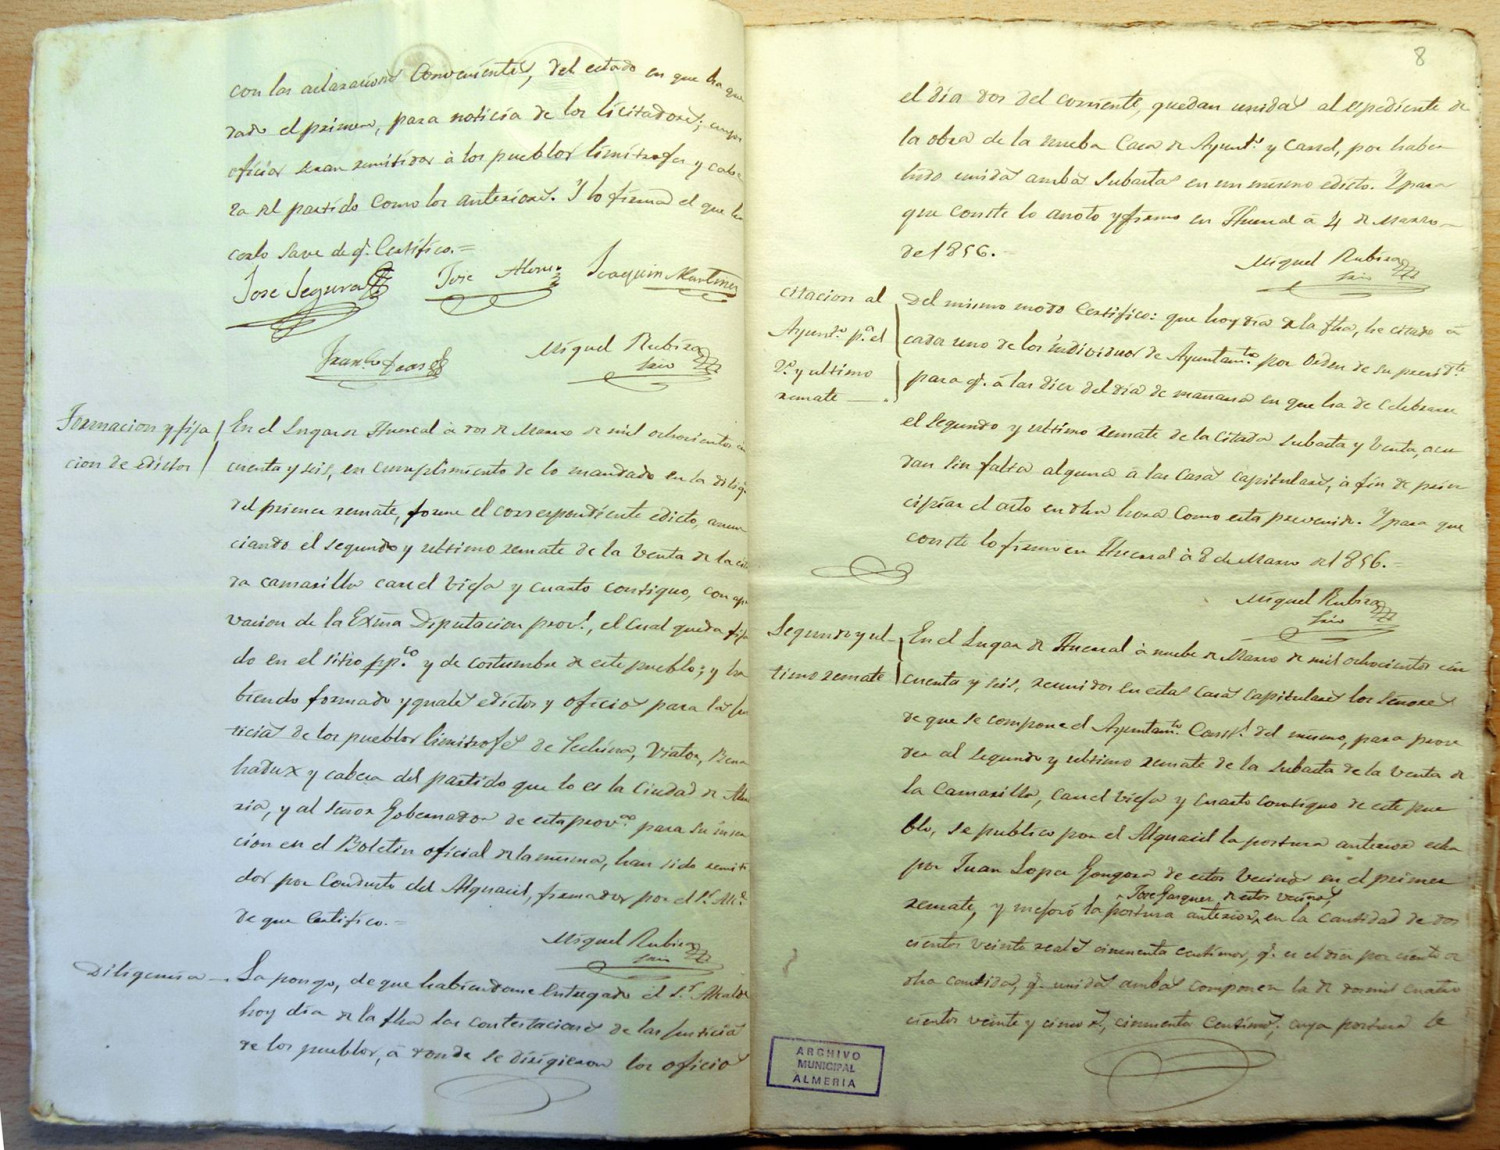 con las aclaraciones convenientes, del estado en que ha que
dado el primero, para noticia de los licitadores; cuyos
oficios seran remitidos à los pueblos limitrofes y cabe
ra del partido como los anteriores. Y lo firmad el que
corlo save de q.e Certifico.=
Jose Segura
Jose Alonso
Joaquin Martinez
Miguel Rubira
Srio
Formacion y fija
cion de Edictos
En el Lugar de Huercal à dos de Marzo de mil ochocientos cin
cuenta y seis, en cumplimiento de lo mandado en la dilig.
del primer remate, forme el correspondiente edicto, anun
ciando el segundo y ultimo remate de la venta de la cita
da camarilla carcel vieja y cuarto contiguo, con apro
vacion de la Exma Diputacion prov.l, el cual queda fija
do en el sitio pp.co y de costumbre de este pueblo; y ha
biendo formado yguales edictos y oficios para las Jus
ticias de los pueblos limitrofes de Pechina, Viator, Bena
hadux y cabeza del partido que lo es la Ciudad de Alme
ria, y al Señor Gobernador de esta prov.ca para su inser
cion en el Boletin oficial de la misma, han sido remiti
dos por conducto del Alguacil, firmados por el S.r Alc.e
de que Certifico.=
Miguel Rubira
Srio
Diligencia
La pongo, de que habiendome entregado el S.r Alcalde
hoy dia de la fha las contestaciones de las Justicias
de los pueblos, à donde se dirigieron los oficios
8
el dia dos del corriente, quedan unidas al espediente de
la obra de la nueba Casa de Ayunt.o y Carcel, por haber
sido unidas ambas subastas en un mismo edicto. Y para
que conste lo anoto y firmo en Huercal à 4 de Marzo
de 1856.=
Miguel Rubira
Srio
Citacion al
Ayunt.o p.a el
2.o y ultimo
remate
Del mismo modo Certifico: que hoy dia de la fha, he citado à
cada uno de los individuos de Ayuntam.to por orden de su presid.te
para q.e à las diez del dia de mañana en que ha de celebrarse
el segundo y ultimo remate de la citada subasta y venta, acu
dan sin falta alguna à las Casas capitulares, à fin de prin
cipiar el acto en dha hora como esta prevenido. Y para que
conste lo firmo en Huercal à 8 de Marzo de 1856.=
Miguel Rubira
Srio
Segundo y ul-
timo remate
En el Lugar de Huercal à nuebe de Marzo de mil ochocientos cin
cuenta y seis, reunidos en estas Casas capitulares los Señores
de que se compone el Ayuntam.to Const.l del mismo, para proce
der al segundo y ultimo remate de la subasta de la venta de
la Camarilla, carcel vieja y cuarto contiguo de este pue
blo, se publico por el Alguacil la postura anterior echa
por Juan Lopez Gongora de estos Vecinos en el primer
Jose Gazquez de estos vecinos,
remate, y mejoró la postura anterior, en la cantidad de dos
cientos veinte reales cincuenta centimos, q.e es el diez por ciento de
dha cantidad, q.e unidas ambas componen la de dos mil cuatro
cientos veinte y cinco r.s, cincuenta centimos; cuya postura se
ARCHIVO
MUNICIPAL
ALMERIA